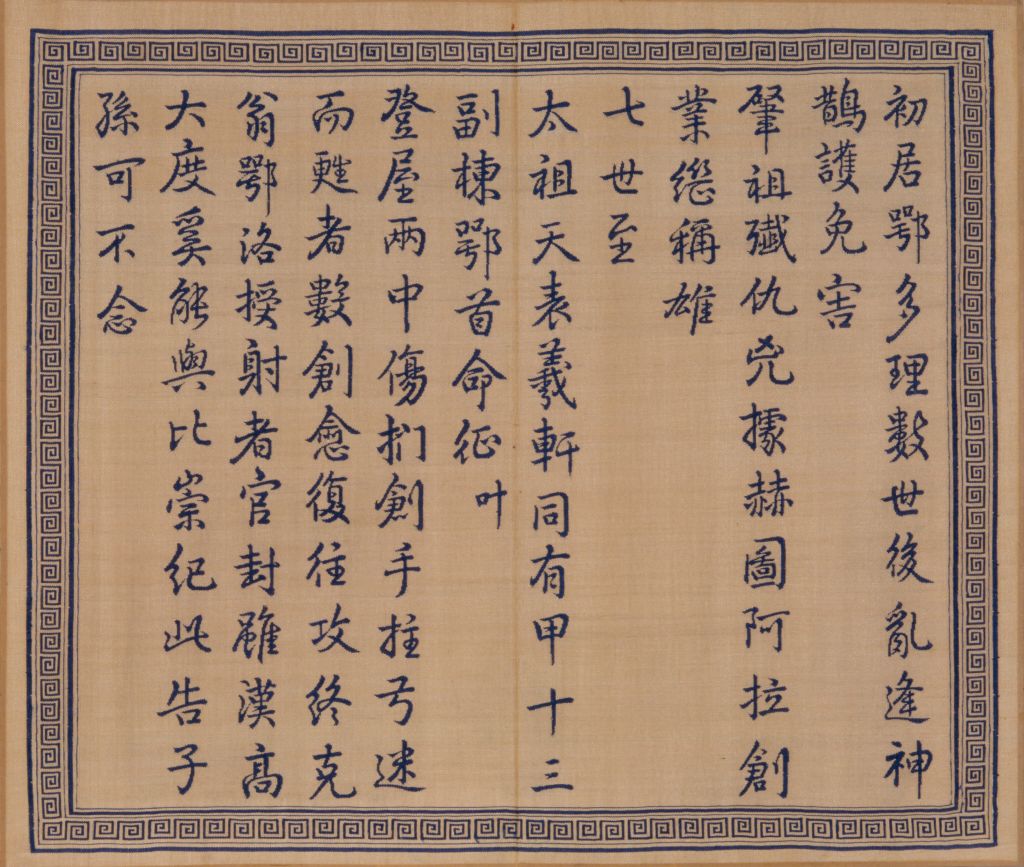 初居鄂多理數世後亂逢神
鵲護免害
肇祖殲仇兇據赫圖阿拉創
業繼稱雄
七世至
太祖天表羲軒同有甲十三
副棟鄂首命征叶
登屋兩中傷捫創手拄弓迷
而甦者數創愈復往攻終克
翁鄂洛授射者官封雖漢高
大度奚能與比崇紀此告子
孫可不念